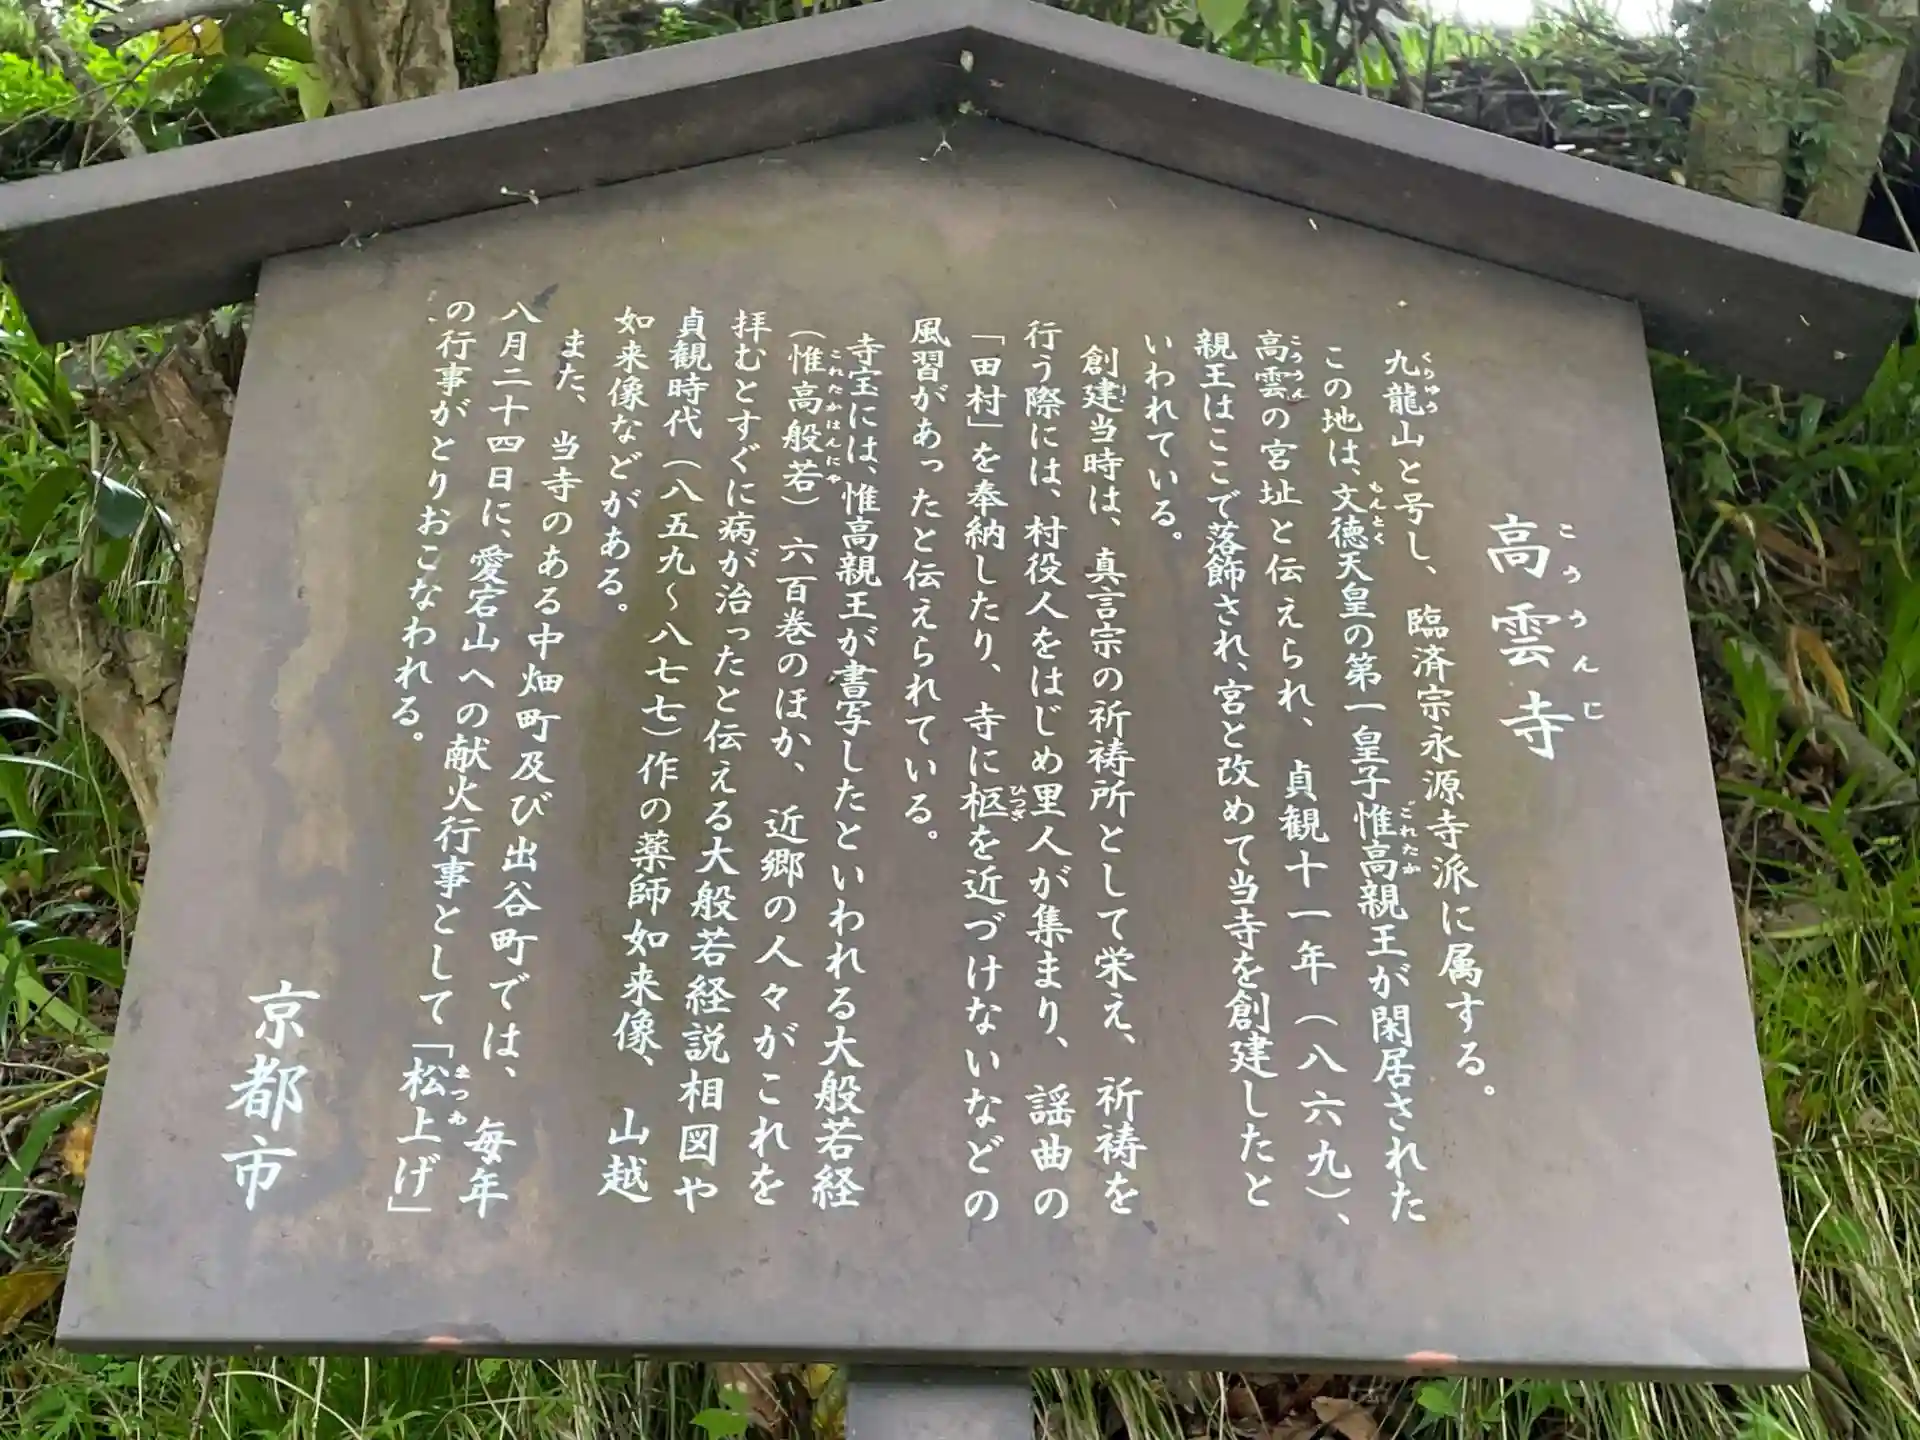 高雲寺
九龍山と号し、臨済宗永源寺派に属する。
この地は、文徳天皇の第一皇子惟高親王が閑居された
高雲の宮址と伝えられ、貞観十一年（八六九）、
親王はここで落飾され、宮と改めて当寺を創建したと
いわれている。
創建当時は、真言宗の祈祷所として栄え、祈祷を
行う際には、村役人をはじめ里人が集まり、謡曲の
「田村」を奉納したり、寺に柩を近づけないなどの
風習があったと伝えられている。
寺宝には、惟高親王が書写したといわれる大般若経
（惟高般若）六百巻のほか、近郷の人々がこれを
拝むとすぐに病が治ったと伝える大般若経説相図や
貞観時代（八五九～八七七）作の薬師如来像、山越
如来像などがある。
また、当寺のある中畑町及び出谷町では、毎年
八月二十四日に、愛宕山への献火行事として「松上げ」
の行事がとりおこなわれる。
京都市